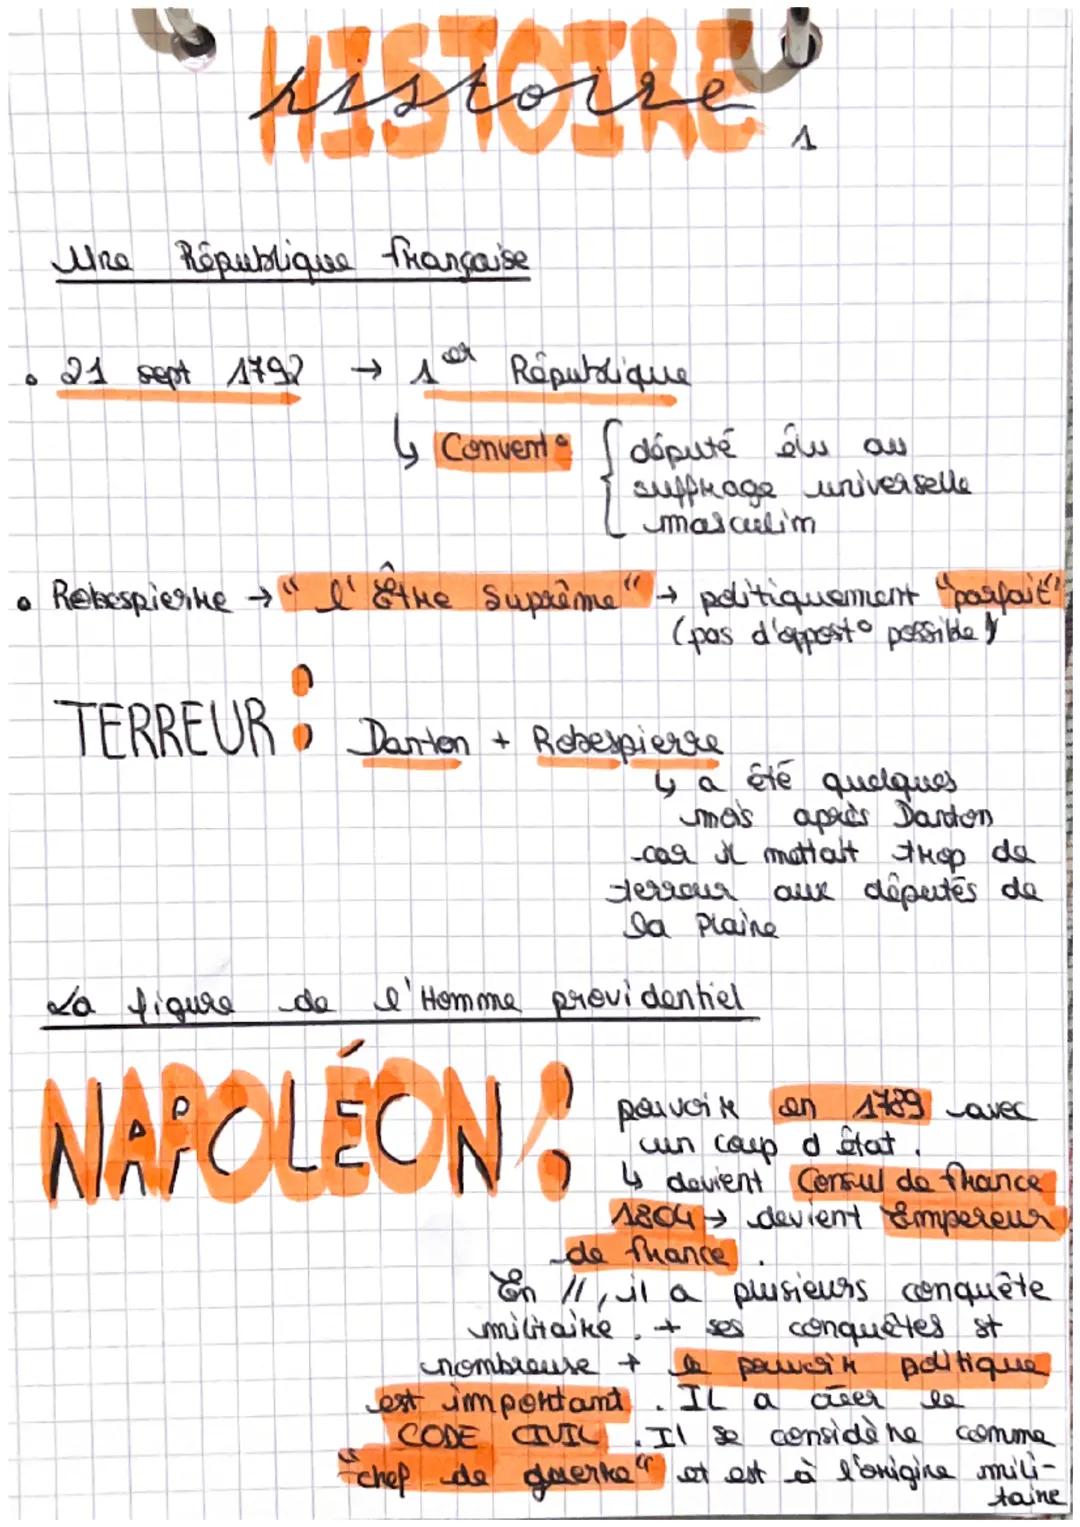 HISTOIRE
histoire
1
Une République française
• 21 sept 1792 → 1er République
↳ Convent° { député élu au
suffrage universelle
masculin
• Robespierre → "l'Être Suprême" → politiquement "parfait"
(pas d'opposit° possible)
TERREUR : Danton + Robespierre
↳ a été quelques
mois après Danton
car il mettait trop de
terreur aux députés de
la Plaine
La figure de l'Homme providentiel
NAPOLÉON : pouvoir en 1789 avec
un coup d'état.
↳ devient Consul de france
1804 → devient Empereur
de france.
En //, il a plusieurs conquête
militaire. + ses conquêtes st
nombreuse + le pouvoir politique
est important. IL a créer le
CODE CIVIL. Il se considère comme
"chef de guerre" et est à l'origine mili-
taire